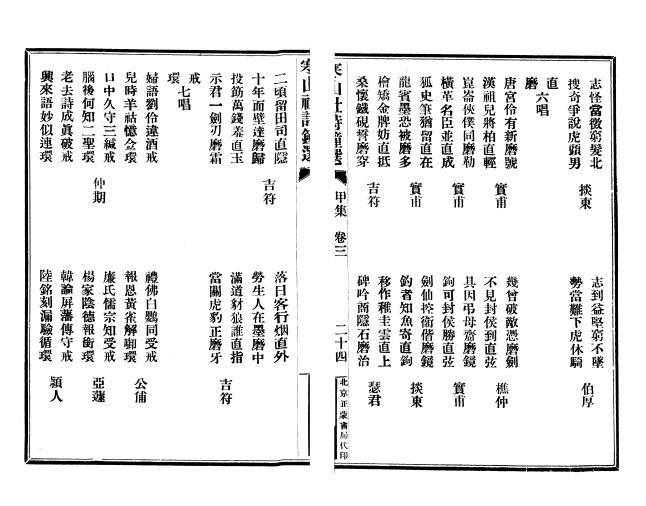 志怪當徵窮髮北　志到益堅窮不墜
搜奇爭說虎頭男　勢當難下虎休騎
掞東　伯厚
直
磨 六唱
唐宮伶有新磨號　幾曾破敵憑磨劍
漢祖兒將柏直輕　不見封侯到直弦
實甫　樵仲
崑崙俠僕同磨勒　具因弔母齋磨鏡
橫革名臣並直成　鉤可封侯勝直弦
實甫　實甫
狐史筆猶留直在　劍仙控衛偕磨鏡
龍賓墨恐被磨多　釣者知魚寄直鉤
實甫　掞東
檜矯金牌妨直抵　移作稚圭雲直上
桑懷鐵硯誓磨穿　碑吟商隱石磨治
吉符　瑟君
寒山社詩鐘選　甲集　卷三　二十四
北京正蒙書局代印
寒山社詩鐘選
二頃留田司直隱　落日客行烟直外
十年面壁達磨歸　勞生人在墨磨中
吉符
投筋萬錢羞直玉　滿道豺狼誰直指
示君一劍刃磨霜　當關虎豹正磨牙
吉符
戒
環 七唱
婦語劉伶違酒戒　禮佛白鸚同受戒
兒時羊祜憶金環　報恩黃雀解啣環
公俌
口中久守三緘戒　廉氏儒宗知受戒
腦後何知二聖環　楊家陰德報銜環
仲期　亞蘧
老去詩成眞破戒　韓論屏藩傳守戒
興來語妙似連環　陸銘刻漏驗循環
潁人